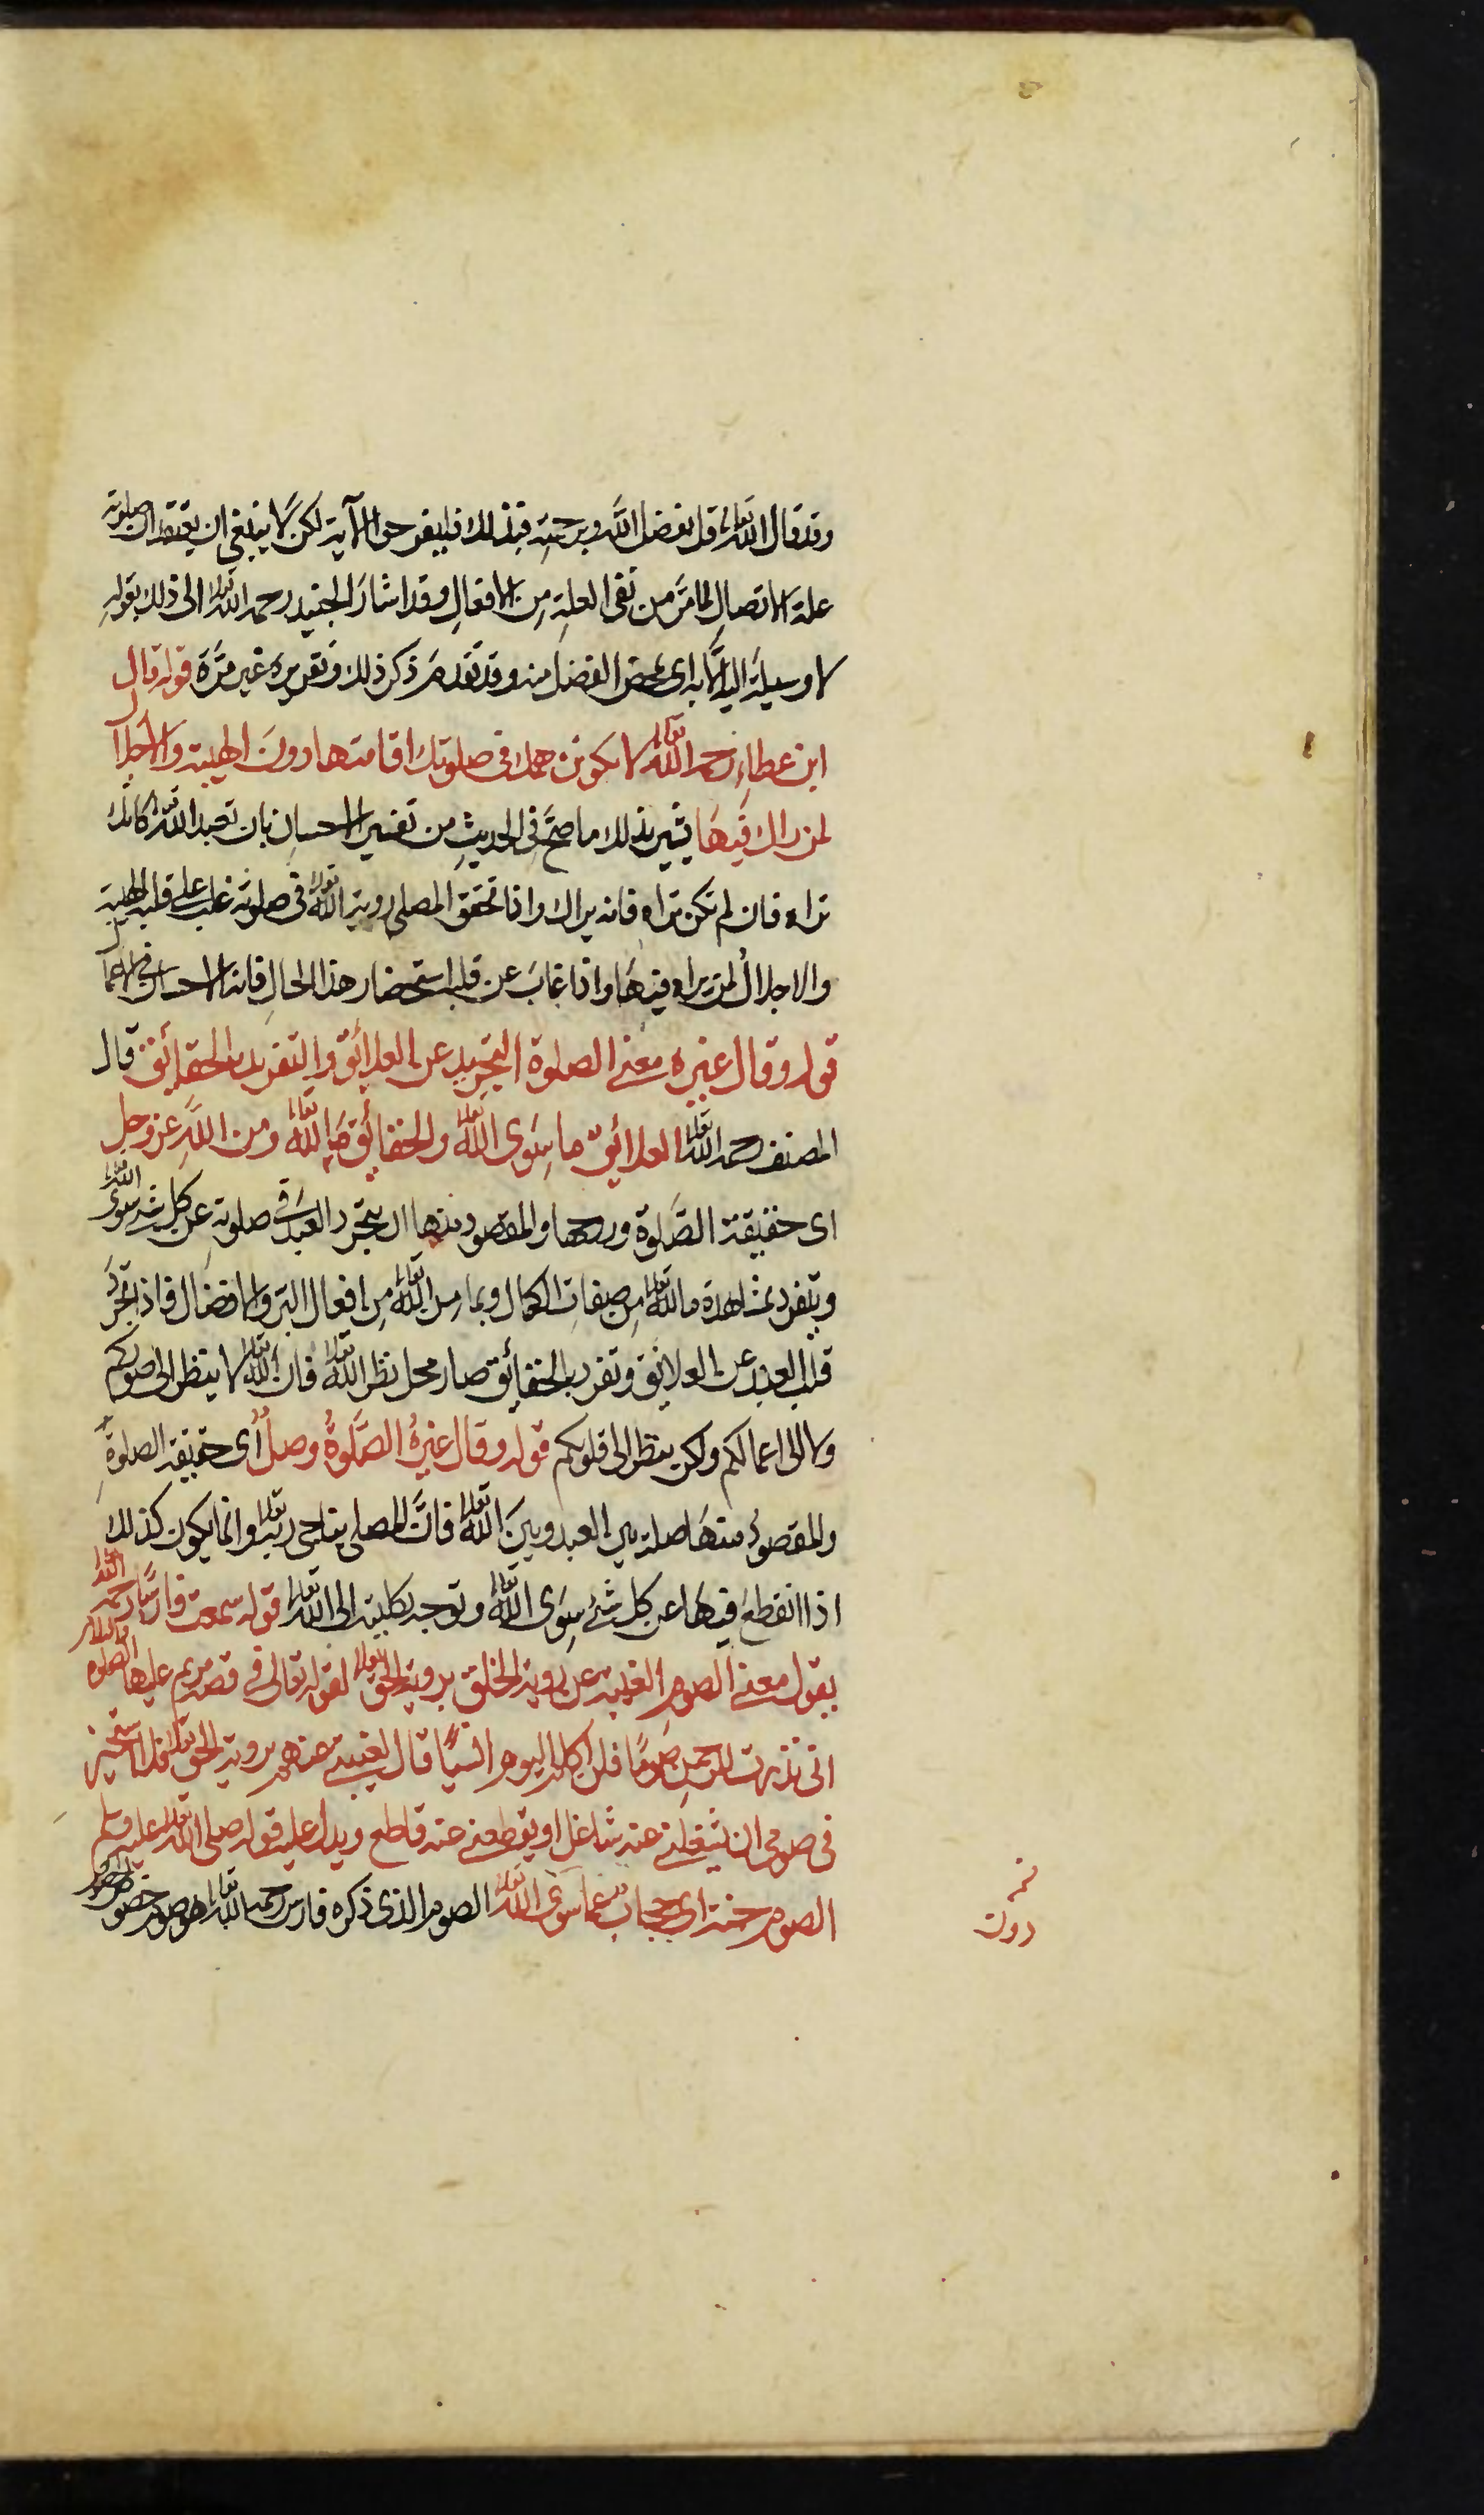 وقد قال الله تعالى قل بفضل الله وبرحمته فبذلك فليفرحوا الآية لكن لا ينبغي ان يعتقد ان صلوته
علة الاتصال لما مر من نفى العلة من الافعال وقد اشار الجنيد رحمه الله تعالى الى ذلك بقوله
لا وسيلة اليه الا به اى بمحض الفضل منه وقد تقدم ذكر ذلك وتقريره غير مرة قوله قال
ابن عطاء رحمه الله تعالى لا يكونن همك فى صلوتك اقامتها دون الهيبة والاجلال
لمن راك فيها يشير بذلك ما صح فى الحديث من تفسير الاحسان بان تعبد الله تعالى كانك
تراه فان لم تكن تراه فانه يراك واذا تحقق المصلى روية الله تعالى فى صلوته غلب على قلبه الهيبة
والاجلال لمن يراه فيها واذا غاب عن قلبه استحضار هذا الحال فاته الاحسان فى الاعمال
قوله وقال غيره معنى الصلوة التجريد عن العلائق والتفريد بالحقائق قال
المصنف رحمه الله تعالى العلائق ما سوى الله تعالى والحقائق ما لله تعالى ومن الله عز وجل
اى حقيقة الصلوة وروحها والمقصود منها ان يتجرد العبد فى صلوته عن كل شئ سوى الله تعالى
ويتفرد بمشاهدة ما لله تعالى من صفات الكمال وبما من الله تعالى من افعال البر والافضال فاذا تجرد
قلب العبد عن العلائق وتفرد بالحقائق صار محل نظر الله تعالى فان الله تعالى لا ينظر الى صوركم
ولا الى اعمالكم ولكن ينظر الى قلوبكم قوله وقال غيره الصلوة وصل اى حقيقة الصلوة
والمقصود منها صلة بين العبد وبين الله تعالى فان المصلى يناجى ربه تعالى وانما يكون كذلك
اذا انقطع فيها عن كل شئ سوى الله تعالى وتوجه بكليته الى الله تعالى قوله سمعت فارسا رحمه الله تعالى
يقول معنى الصوم الغيبة عن روية الخلق بروية الحق تعالى لقوله تعالى فى قصة مريم عليها الصلوة والسلام
انى نذرت للرحمن صوما فلن اكلم اليوم انسيا قال لغيبتى عنهم بروية الحق تعالى فلا استجيز
فى صومى ان يشغلنى عنه شاغل او يقطعنى عنه قاطع ويدل عليه قوله صلى الله تعالى عليه وسلم
الصوم جنة اى حجاب عما سوى الله تعالى الصوم الذى ذكره فارس رحمه الله تعالى هو صوم خصوص
دون